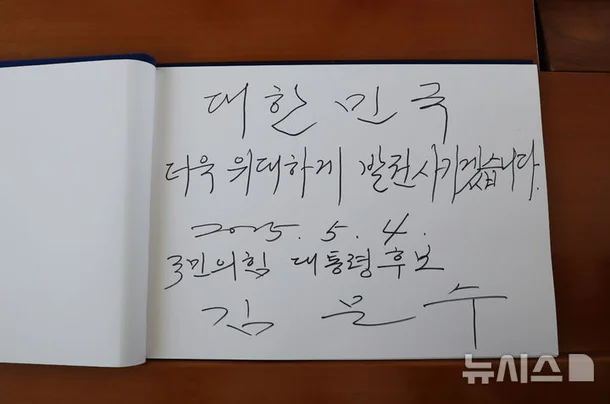 대한민국
더욱 위대하게 발전시키겠습니다.
2025. 5. 4.
국민의힘 대통령후보
김문수
뉴시스